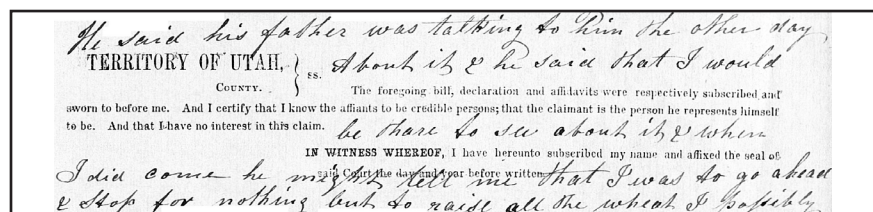 He said his father was talking to him the other day
TERRITORY OF UTAH, } ss. About it & he said that I would
COUNTY.
The foregoing bill, declaration and affidavits were respectively subscribed and
sworn to before me. And I certify that I know the affiants to be credible persons; that the claimant is the person he represents himself
to be. And that I have no interest in this claim.
be thare to see about it & when
IN WITNESS WHEREOF, I have hereunto subscribed my name and affixed the seal of
said Court the day and year before written
I did come he might tell me that I was to go ahead
& stop for nothing but to raise all the wheat I possibly